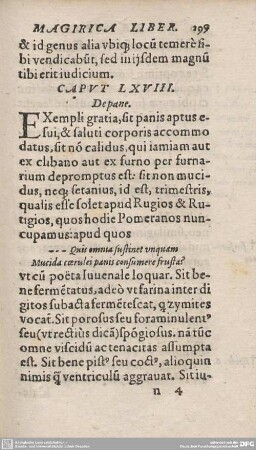 MAGIRICA LIBER. 199
& id genus alia vbiq; locũ temerè si-
bi vendicabũt, sed in ijsdem magnũ
tibi erit iudicium.
CAPVT LXVIII.
De pane.
EXempli gratia, sit panis aptus e-
sui, & saluti corporis accommo
datus, sit nõ calidus, qui iamiam aut
ex clibano aut ex furno per furna-
rium depromptus est: sit non muci-
dus, neq; setanius, id est, trimestris,
qualis esse solet apud Rugios & Ru-
tigios, quos hodie Pomeranos nun-
cupamus: apud quos
--- Quis omnia sustinet vnquam
Mucida cœrulei panis consumere frusta?
vt cũ poëta Iuuenale loquar. Sit be
ne fermẽtatus, adeò vt farina inter di
gitos subacta fermẽtescat, q zymites
vocat. Sit porosus seu foraminulent⁹
seu (vt rectiùs dicã) spõgiosus. nã tũc
omne viscidũ ac tenacitas assumpta
est. Sit bene pist⁹ seu coct⁹, alioquin
nimis q̃ ventriculũ aggrauat. Sit iu-
n 4